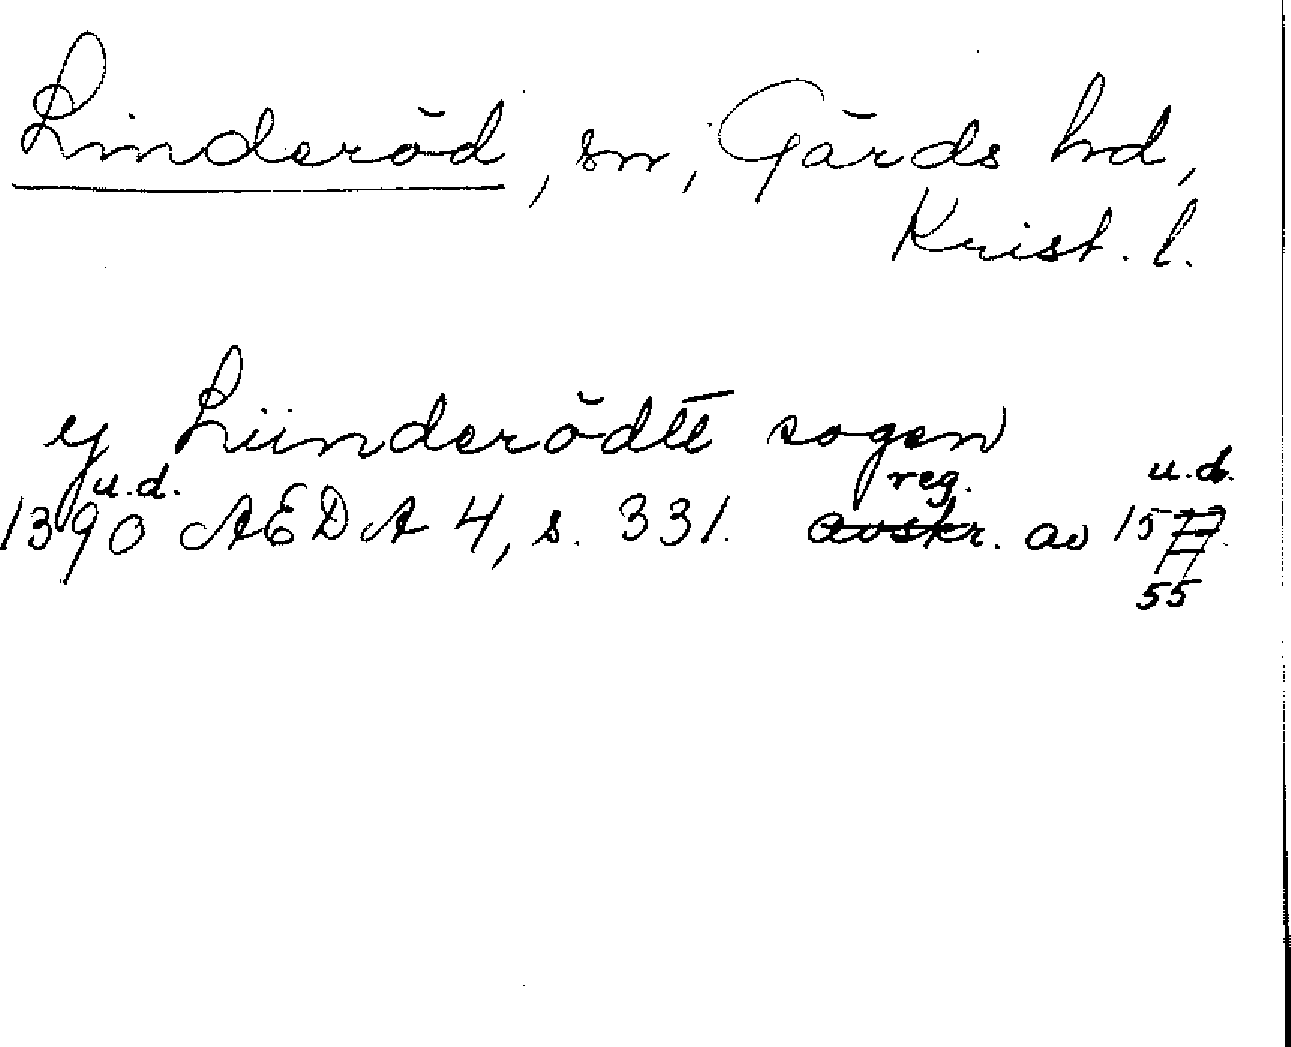 Linderöd, sn, Gärds hd,
Krist. l.
ij Liinderödtt sogen
u.d. reg. u.d.
1390 AEDA 4, s. 331. avskr. av 1577.
55